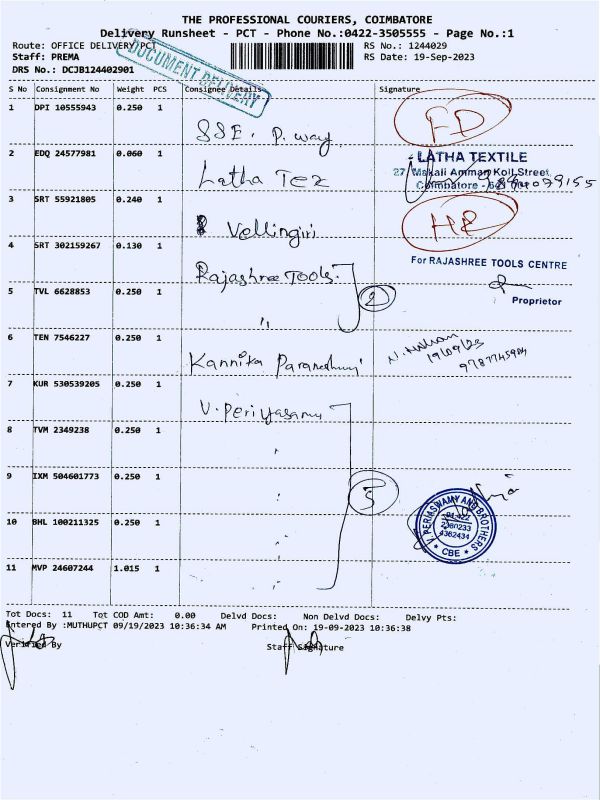 THE PROFESSIONAL COURIERS, COIMBATORE
Delivery Runsheet - PCT - Phone No.:0422-3505555 - Page No.:1
Route: OFFICE DELIVERY/PCT RS No.: 1244029
Staff: PREMA RS Date: 19-Sep-2023
DRS No.: DCJB124402901
DOCUMENT DELIVERY
S No Consignment No Weight PCS Consignee Details Signature
1 DPI 10555943 0.250 1
SSE. P. way FD
2 EDQ 24577981 0.060 1
Latha Tex
LATHA TEXTILE
27, Makali Amman Koil Street,
Coimbatore
3 SRT 55921805 0.240 1
Vellingiri
4 SRT 302159267 0.130 1
Rajashree Tools.
For RAJASHREE TOOLS CENTRE
Proprietor
5 TVL 6628853 0.250 1
" 2
6 TEN 7546227 0.250 1
Kannika
19/09/23
7 KUR 530539205 0.250 1
V. Periyasamy
8 TVM 2349238 0.250 1
9 IXM 504601773 0.250 1
5
V. PERIASWAMY AND BROTHERS
4362434
* CBE *
10 BHL 100211325 0.250 1
11 MVP 24607244 1.015 1
Tot Docs: 11 Tot COD Amt: 0.00 Delvd Docs: Non Delvd Docs: Delvy Pts:
Entered By :MUTHUPCT 09/19/2023 10:36:34 AM Printed On: 19-09-2023 10:36:38
Verified By Staff Signature